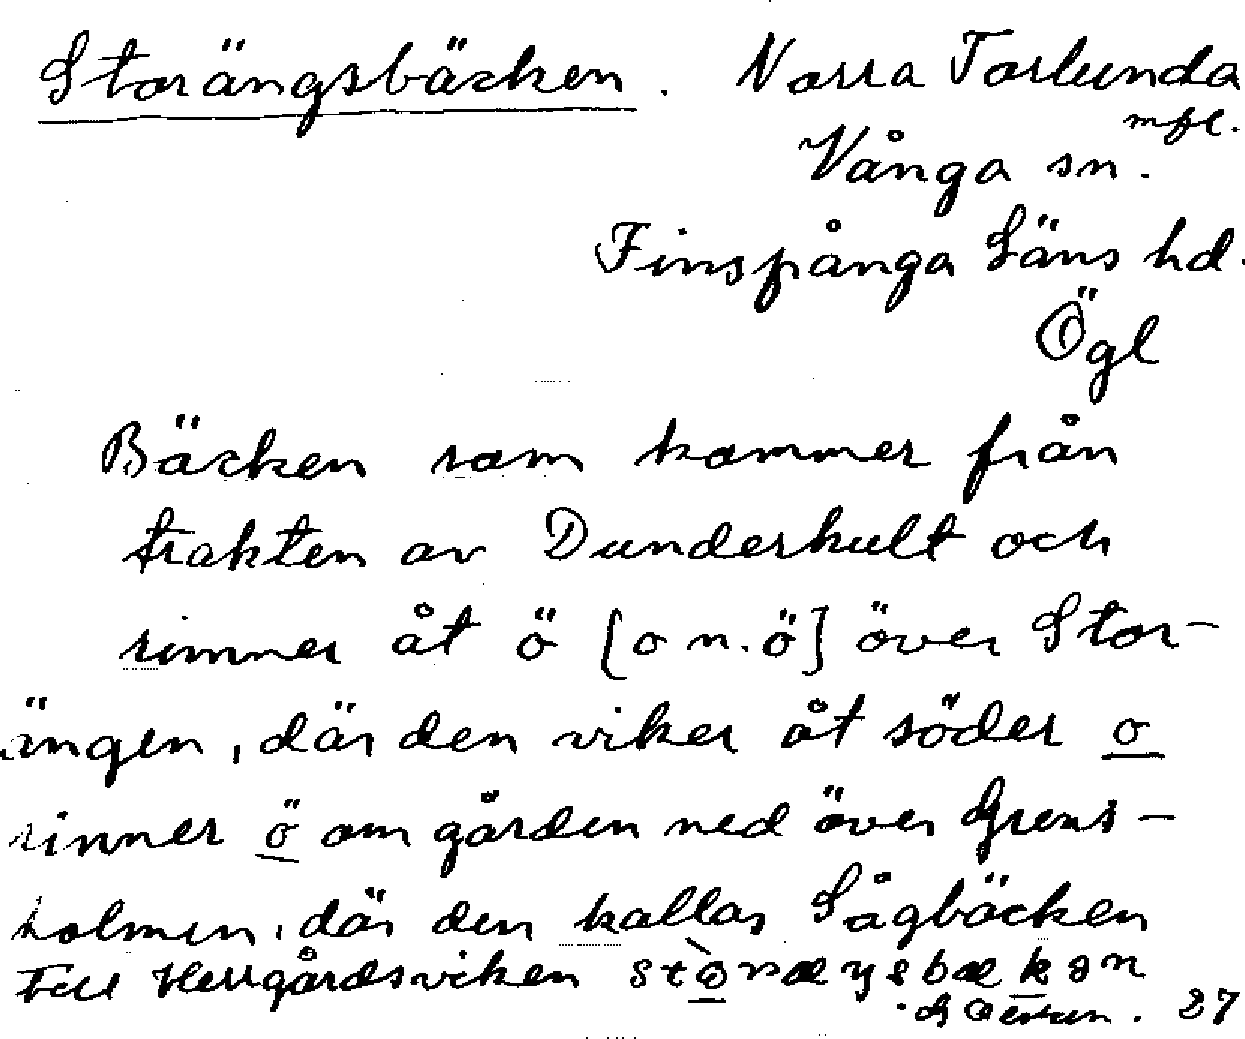 Storängsbäcken. Norra Torlunda
mfl.
Vånga sn.
Finspånga Läns hd.
Ögl
Bäcken som kommer från
trakten av Dunderhult och
rinner åt ö [o n.ö] över Stor-
ängen, där den viker åt söder o
rinner ö om gården ned över Grens-
holmen, där den kallas Sågbäcken
till Herrgårdsviken
27